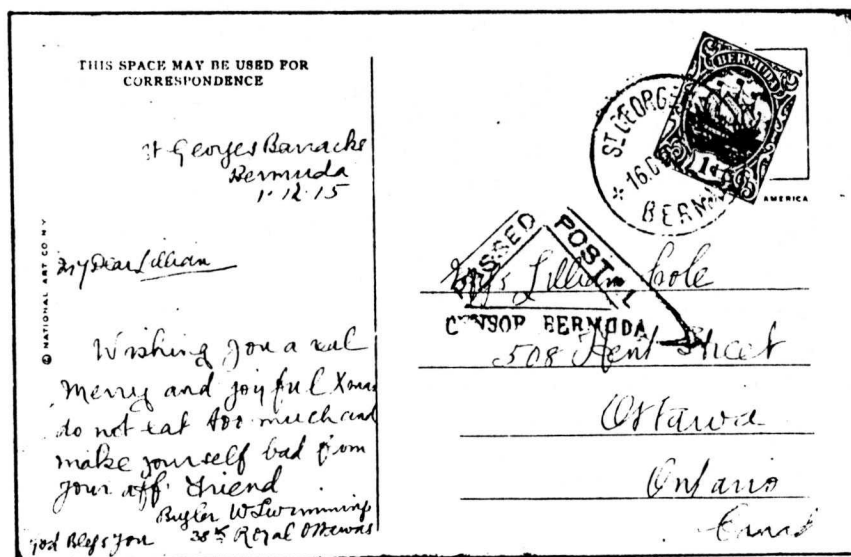 THIS SPACE MAY BE USED FOR
CORRESPONDENCE
St Georges Barracks
Bermuda
1·12·15
My Dear Lillian
Wishing you a real
Merry and joyful Xmas
do not eat too much and
make yourself bad from
your aff. friend
Bugler W
38th Royal Ottawas
God Bless You
© NATIONAL ART CO N Y
ST GEORGE
16.D
BERM
BERMUDA
1d
AMERICA
PASSED POSTAL
CENSOR BERMUDA
Lillian Cole
508 Kent Street
Ottawa
Ontario